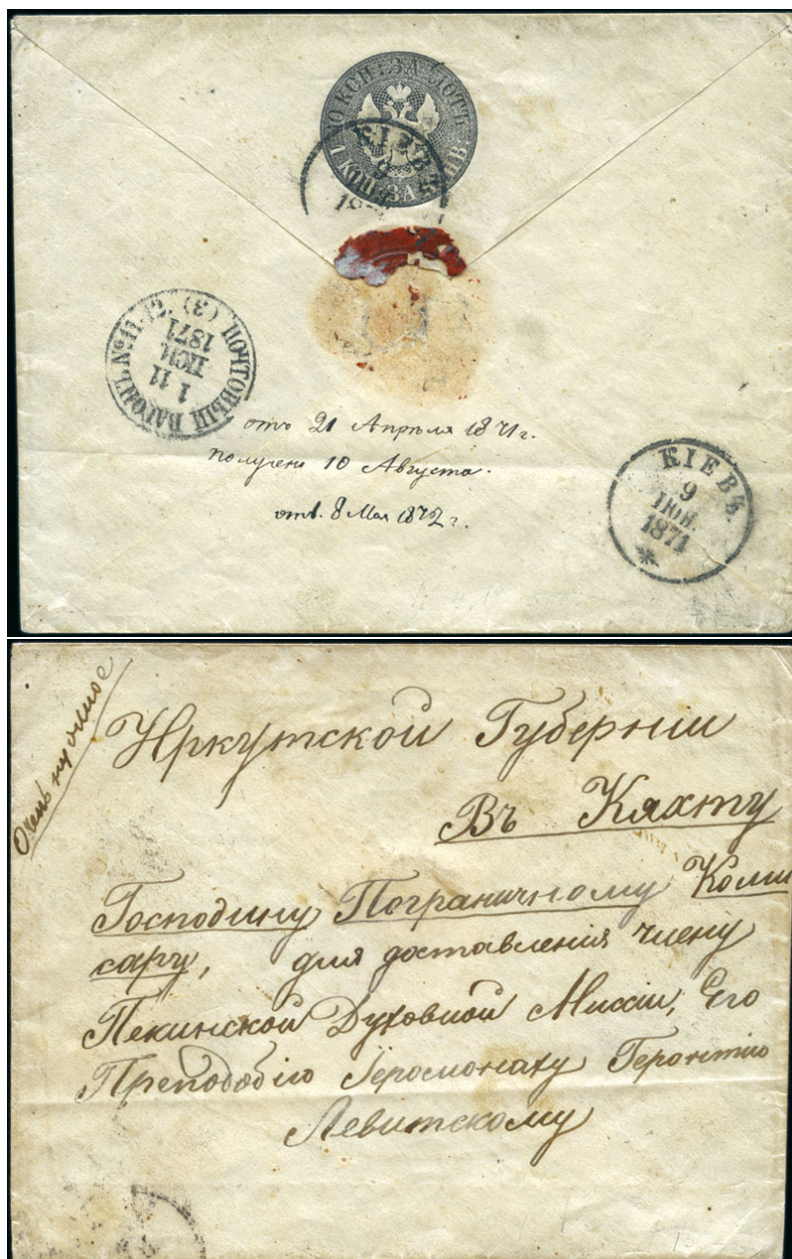 10 КОП: ЗА ЛОТЪ
1 КОП: ЗА
КІЕВ
9
18
ПОЧТОВЫЙ ВАГОНЪ № 11-12. (3)
1 11
ІЮН.
1871
отъ 21 Апрѣля 1871 г.
получено 10 Августа.
отв. 8 Мая 1872 г.
КІЕВЪ
9
ІЮН.
1871
Очень нужное
Иркутской Губерніи
Въ Кяхту
Господину Пограничному Коми
сару, для доставленія члену
Пекинской Духовной Миссіи, Его
Преподобію Іеромонаху Геронтію
Левитскому